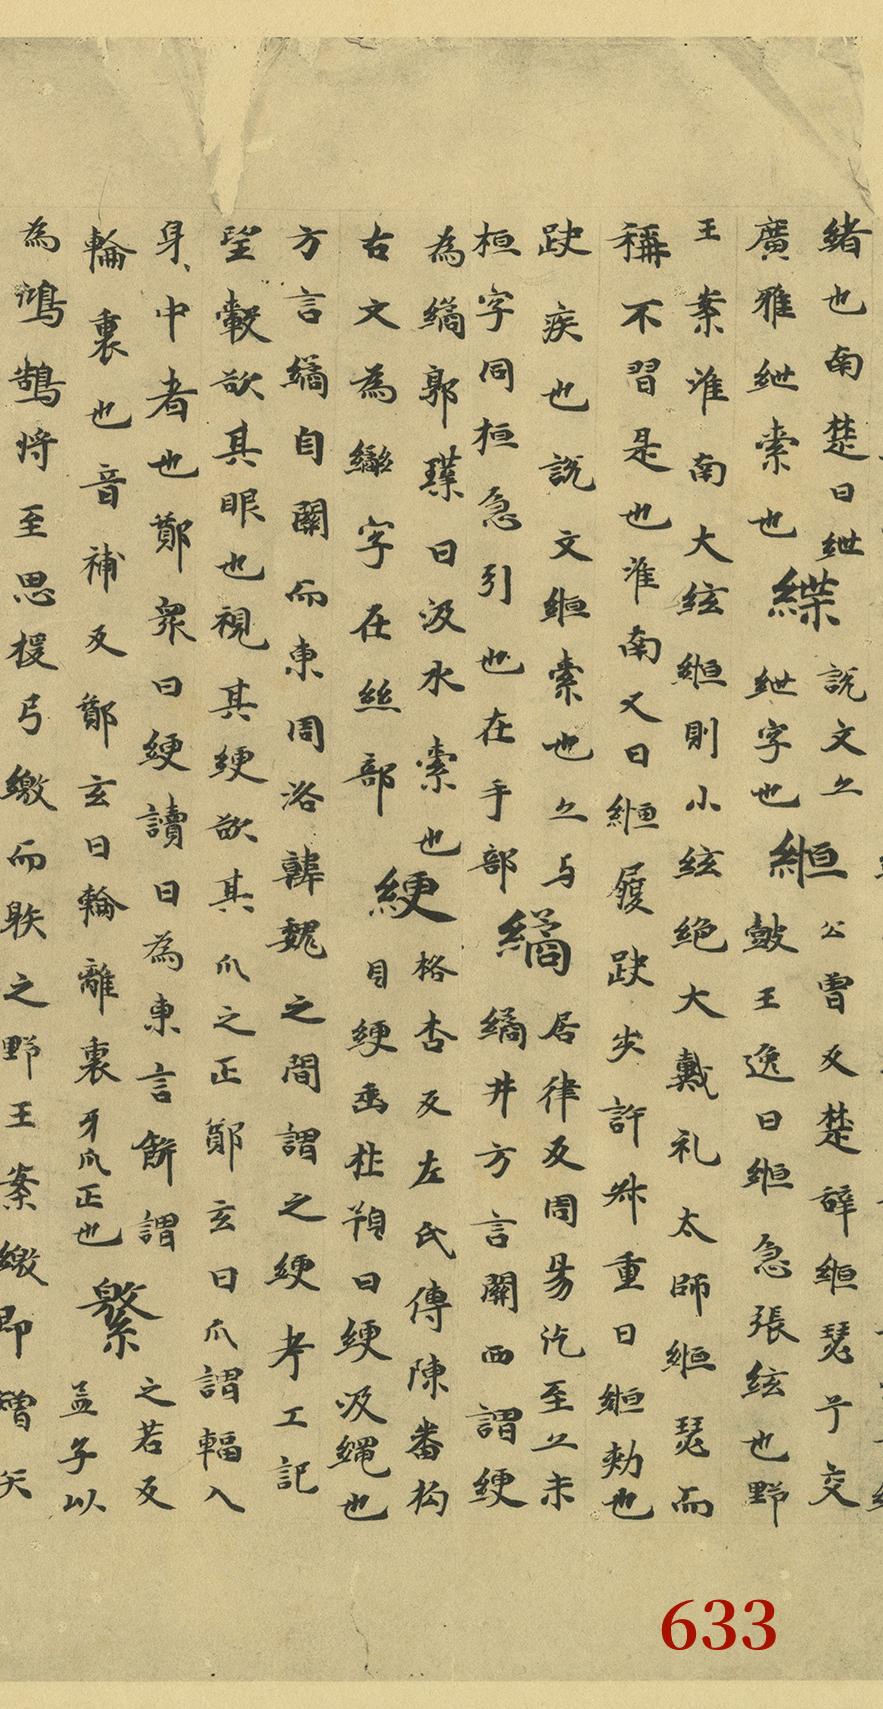 緒也南楚曰紲
廣雅紲索也
緤
說文亦
紲字也
緪
公曾反楚辞緪瑟兮交
皷王逸曰緪急張絃也野
王案淮南大絃緪則小絃絶大戴礼太師緪瑟而
稱不習是也淮南又曰緪履趹步許叔重曰緪勅也
趹疾也說文緪索也亦与
桓字同桓急引也在手部
繘
居律反周昜汔至亦未
繘井方言關西謂綆
為繘郭璞曰汲水索也
古文為字在絲部
綆
格杏反左氏傳陳番挶
自綆缶杜預曰綆汲繩也
方言繘自關而東周洛韓魏之間謂之綆考工記
望轂欲其眼也視其綆欲其爪之正鄭玄曰爪謂輻入
身中者也鄭衆曰綆讀曰為東言餅謂
輪裏也音補反鄭玄曰輪離裏牙爪正也
繁
之若反
孟子以
為鴻鵠將至思楥弓繳而䠶之野王案繳即矰矢
633